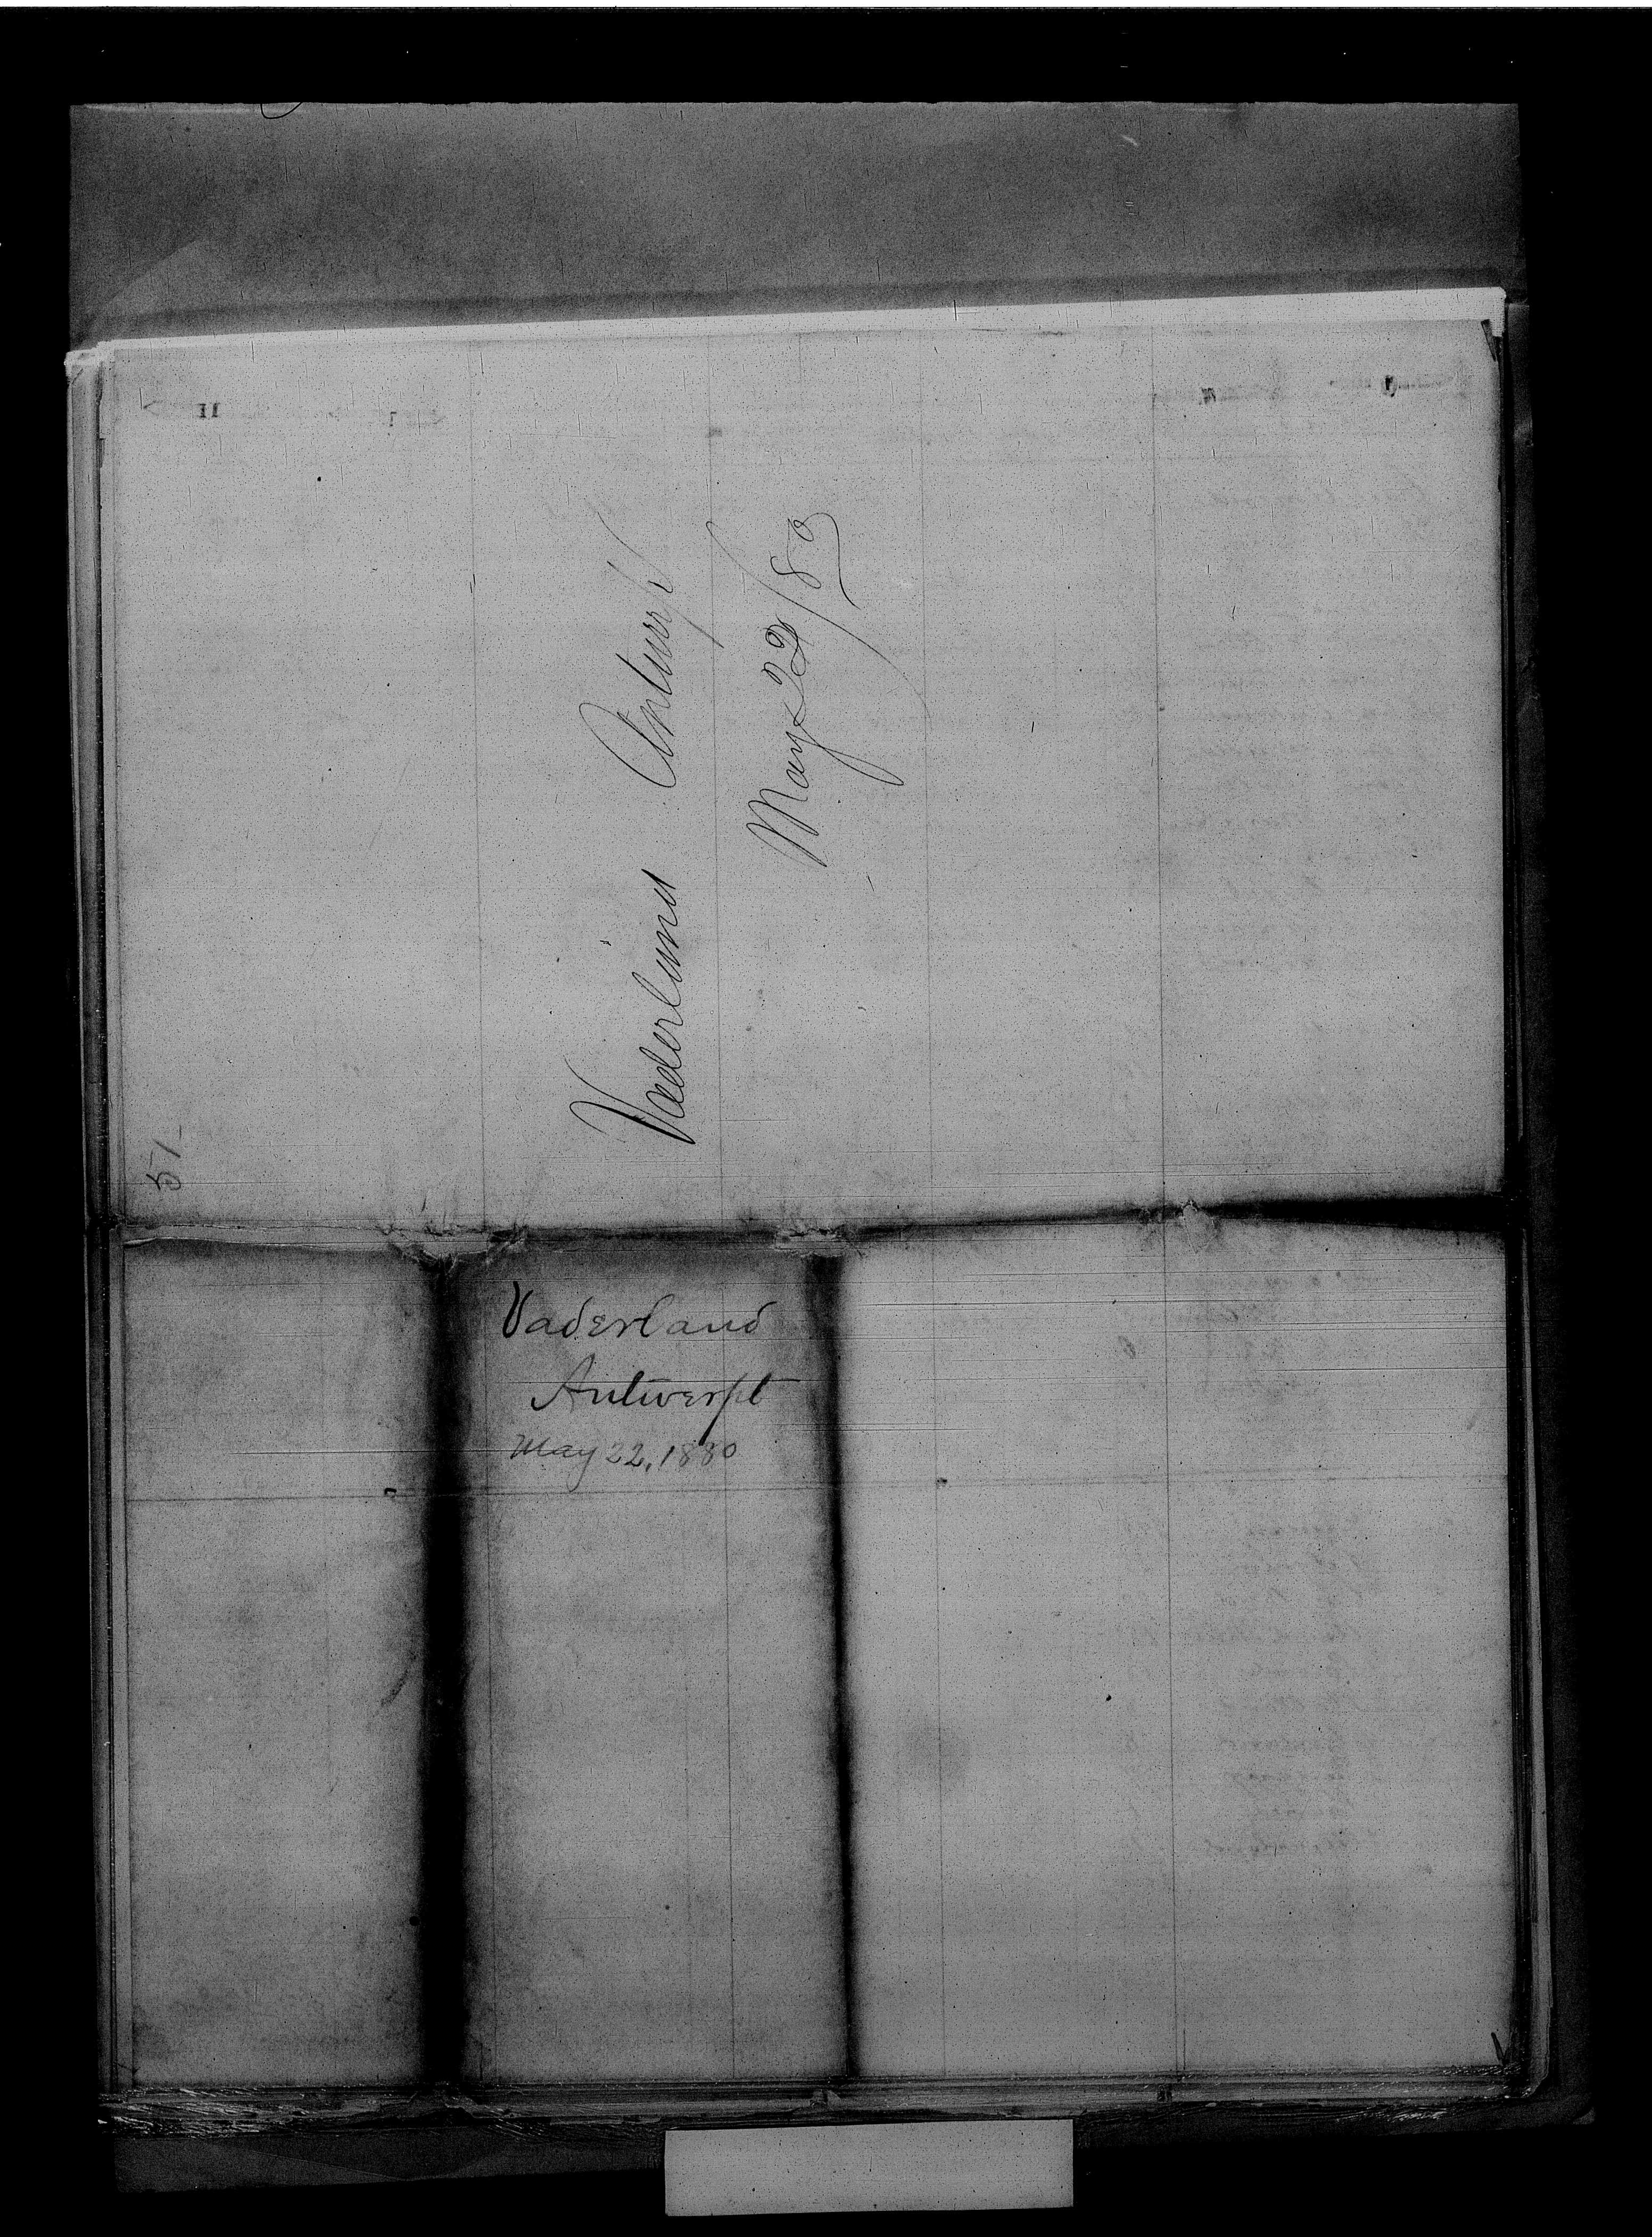 Vaderland Antwerpt
May 22/80
51
Vaderland
Antwerpt
May 22, 1880